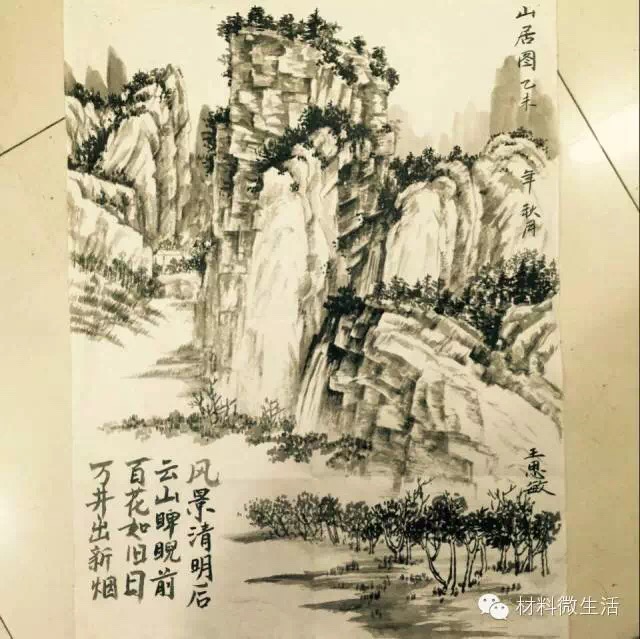 山居图 乙未
年秋月
风景清明后
云山睥睨前
百花如旧日
万井出新烟
王惠敏
材料微生活